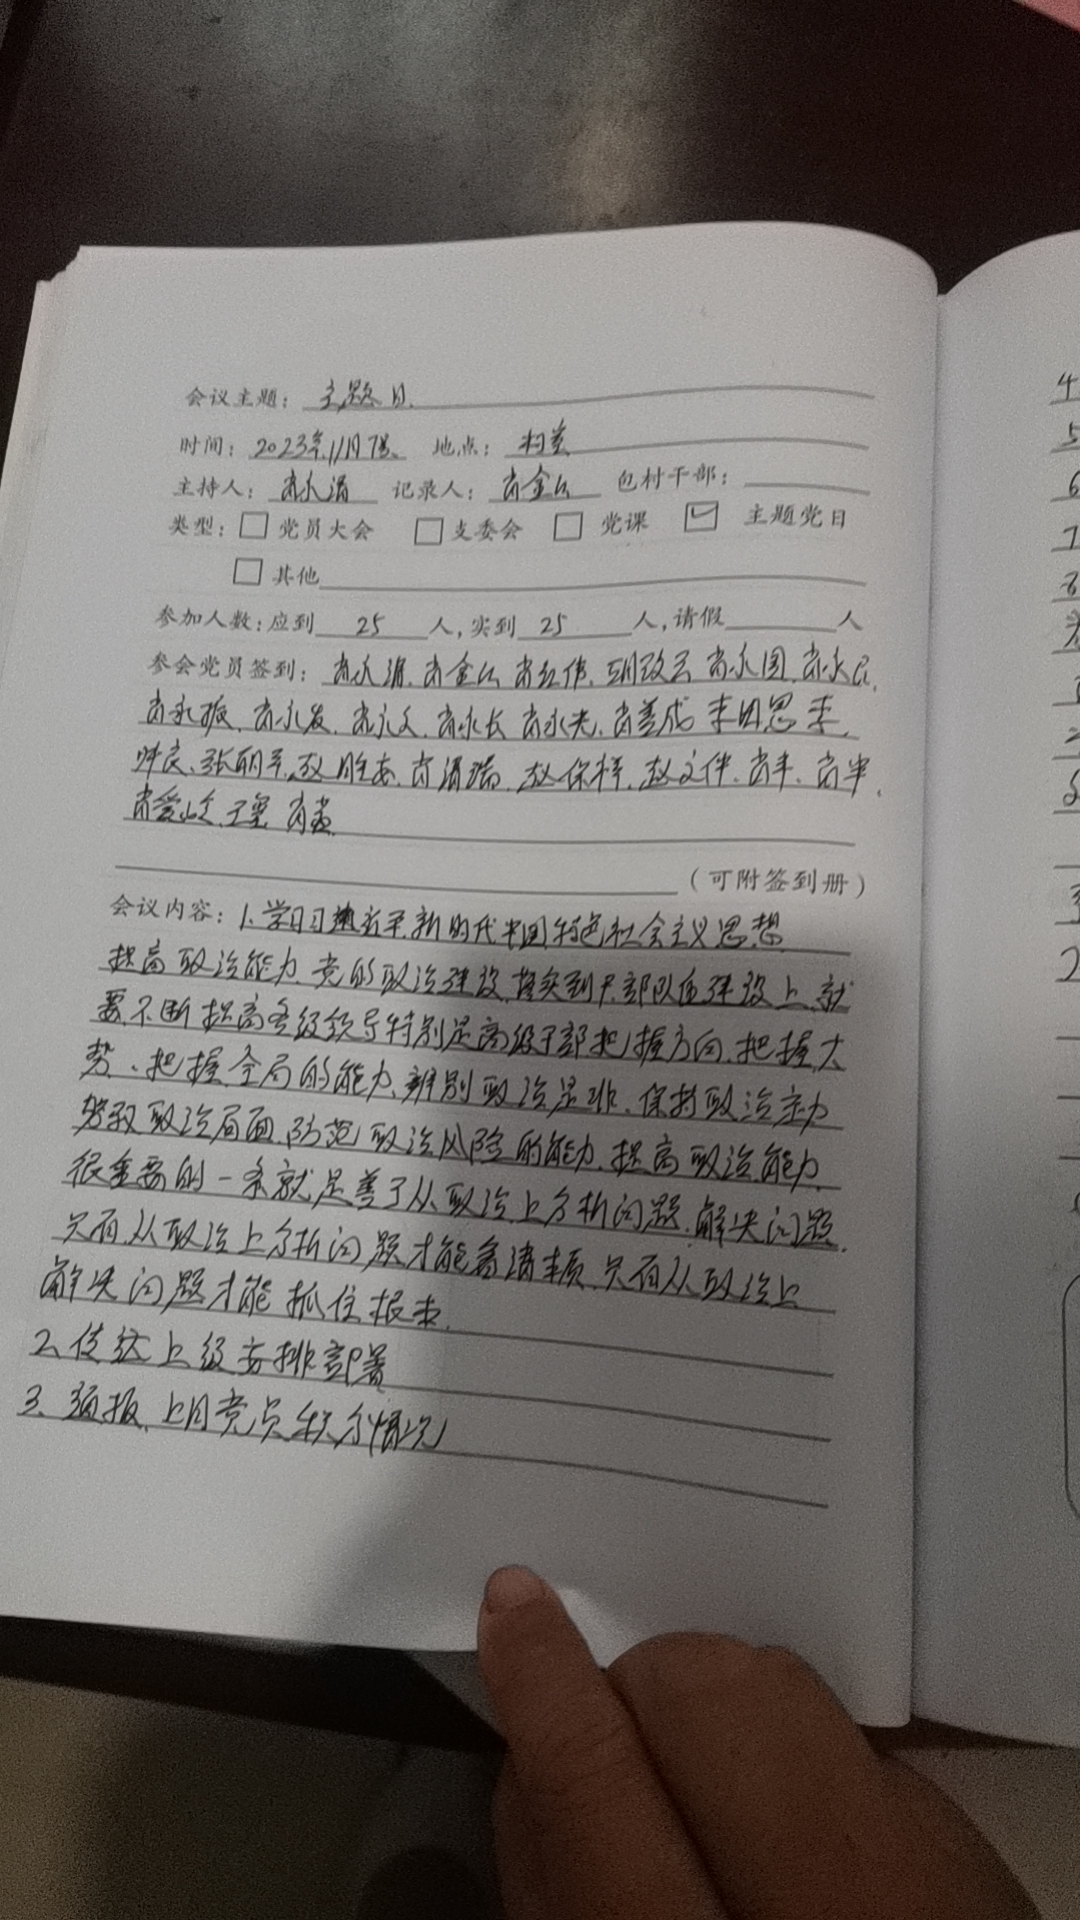 会议主题：主题日
时间：2023年11月7号 地点：村委
主持人：肖永涓 记录人：肖金 包村干部：
类型：□党员大会 □支委会 □党课 ☑主题党日
□其他
参加人数：应到 25 人，实到 25 人，请假 人
参会党员签到：肖永涓、肖金 肖红伟、 肖永国、肖永民、
肖永振、肖永发、肖永文、肖永长 肖永光、肖善成 李田恩 李
、张丽平、赵胜安、肖涓瑞、赵保祥、赵文件、肖丰、肖军、
肖爱岐、王军 肖
（可附签到册）
会议内容：1、学习习近平新时代中国特色社会主义思想
提高政治能力、党的政治建设，落实到干部队伍建设上，就
要不断提高各级领导特别是高级干部把握方向、把握大
势、把握全局的能力、辨别政治是非、保持政治主动
驾驭政治局面、防范政治风险的能力，提高政治能力，
很重要的一条就是善于从政治上分析问题、解决问题，
只有从政治上分析问题才能看清本质，只有从政治上
解决问题才能抓住根本。
2、传达上级安排部署
3、预报、上月党员积分情况
4
5
6
7
8
2